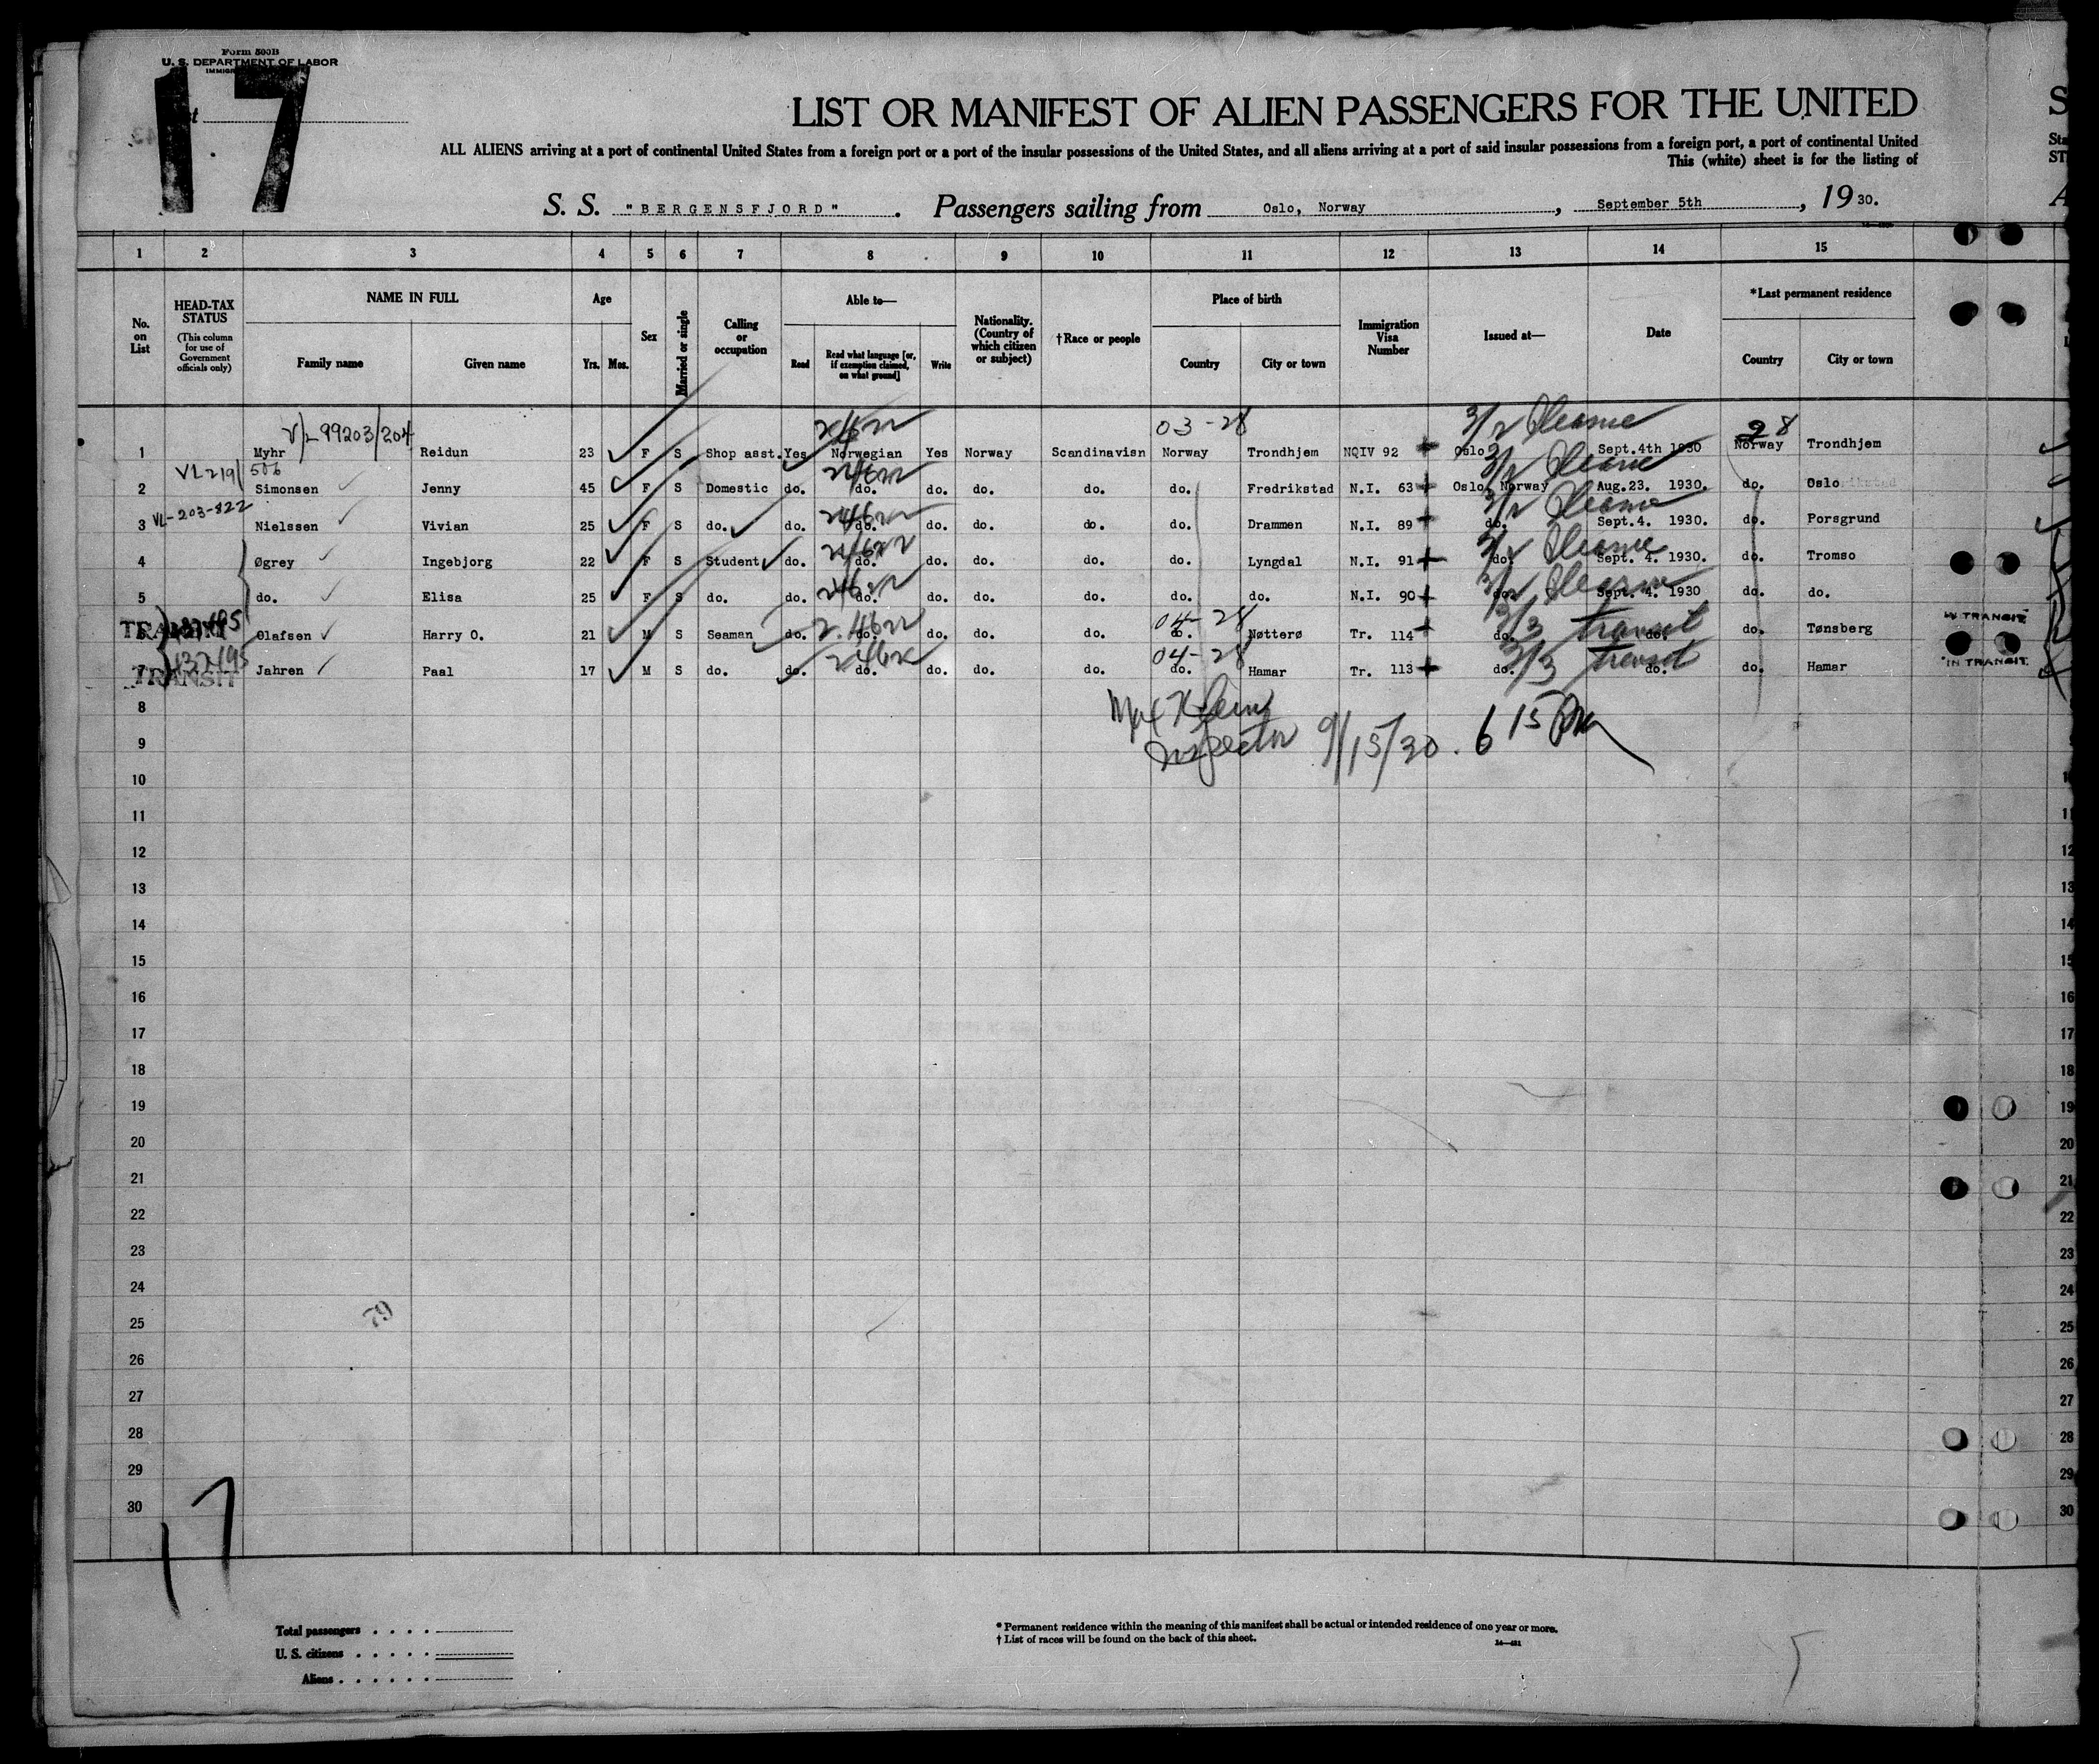 Form 500B
U. S. DEPARTMENT OF LABOR
17
LIST OR MANIFEST OF ALIEN PASSENGERS FOR THE UNITED
ALL ALIENS arriving at a port of continental United States from a foreign port or a port of the insular possessions of the United States, and all aliens arriving at a port of said insular possessions from a foreign port, a port of continental United
This (white) sheet is for the listing of
S. S. "BERGENSFJORD". Passengers sailing from Oslo, Norway, September 5th, 1930.
1 2 3 4 5 6 7 8 9 10 11 12 13 14 15
No. on List
HEAD-TAX STATUS (This column for use of Government officials only)
NAME IN FULL Family name Given name
Age Yrs. Mos.
Sex
Married or single
Calling or occupation
Able to— Read Read what language [or, if exemption claimed, on what ground] Write
Nationality. (Country of which citizen or subject)
†Race or people
Place of birth Country City or town
Immigration Visa Number
Issued at—
Date
*Last permanent residence Country City or town
V/L 99203/204 03-28 28
1 Myhr Reidun 23 F S Shop asst. Yes Norwegian Yes Norway Scandinavian Norway Trondhjem NQIV 92 Oslo Sept.4th 1930 Norway Trondhjem
VL 219/506
2 Simonsen Jenny 45 F S Domestic do. do. do. do. do. do. Fredrikstad N.I. 63 Oslo, Norway Aug.23. 1930. do. Oslo
VL-203-822
3 Nielssen Vivian 25 F S do. do. do. do. do. do. do. Drammen N.I. 89 do. Sept.4. 1930. do. Porsgrund
4 Øgrey Ingebjorg 22 F S Student do. do. do. do. do. do. Lyngdal N.I. 91 do. Sept. 4. 1930. do. Tromso
5 do. Elisa 25 F S do. do. do. do. do. do. do. do. N.I. 90 do. Sept. 4. 1930 do. do.
04-28
TRANSIT 6 Olafsen Harry O. 21 M S Seaman do. do. do. do. do. do. Nøtterø Tr. 114 do. 3/3 transit do. do. Tønsberg IN TRANSIT
04-28
TRANSIT 7 Jahren Paal 17 M S do. do. do. do. do. do. do. Hamar Tr. 113 do. 3/3 transit do. do. Hamar "IN TRANSIT.
8
Inspector 9/15/30. 6 15 PM
9
10
11
12
13
14
15
16
17
18
19
20
21
22
23
24
25
26
27
28
29
30
17
Total passengers
U. S. citizens
Aliens
* Permanent residence within the meaning of this manifest shall be actual or intended residence of one year or more.
† List of races will be found on the back of this sheet.